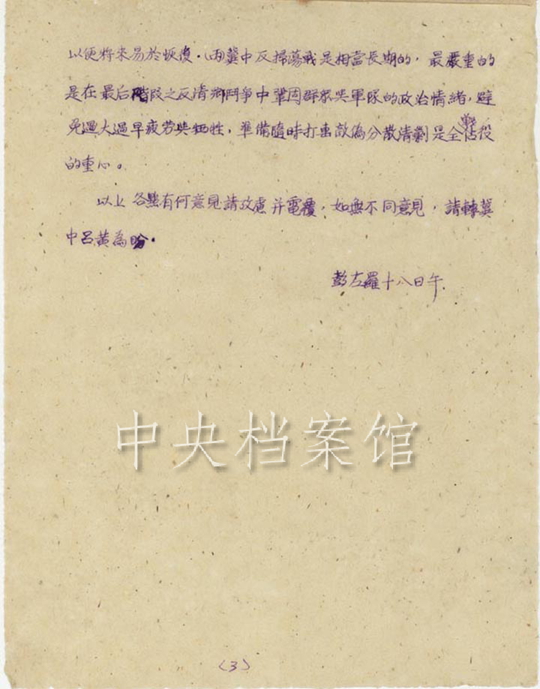 以便将来易於恢復．而冀中反掃蕩战是相當長期的，最嚴重的
是在最后階段之反清鄉鬥爭中鞏固群衆與軍隊的政治情緒，避
免過大過早疲劳與牺牲，準備隨時打击敵偽分散清剿是全战役
的重心。
以上各點有何意見請攷慮并電覆，如無不同意見，請轉冀
中呂黄為盼．
彭左羅十八日午．
中央档案馆
(3)